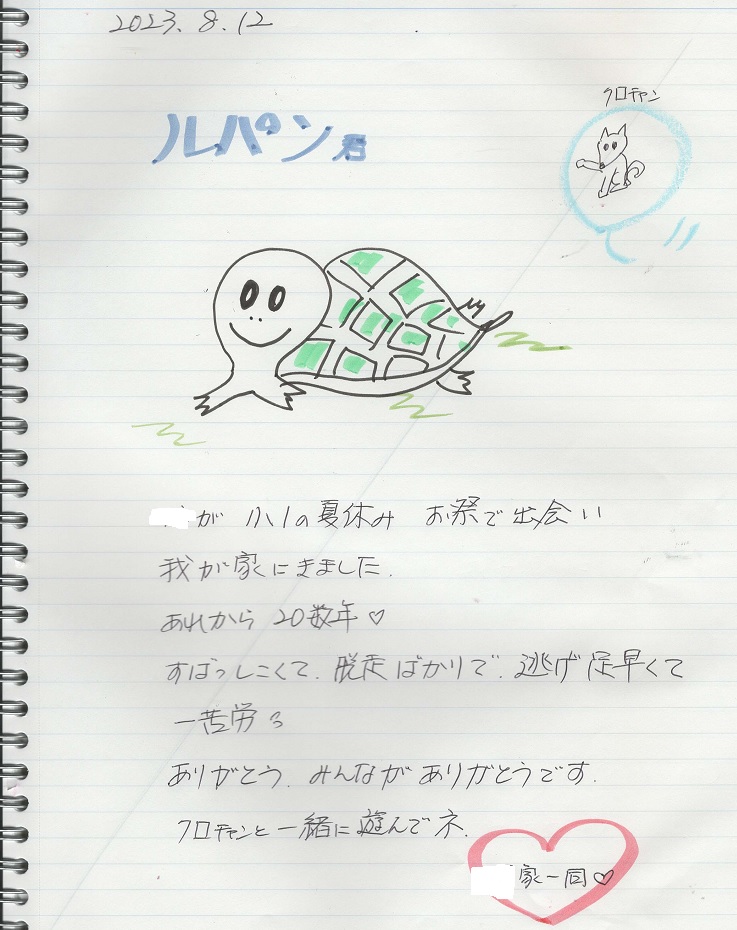 2023.8.12
クロチャン
ルパン君
が 小1の夏休み お祭で出会い
我が家にきました.
あれから 20数年♡
すばっしこくて.脱走ばかりで.逃げ足早くて
一苦労
ありがとう.みんながありがとうです.
クロチャンと一緒に遊んでネ.
家一同♡